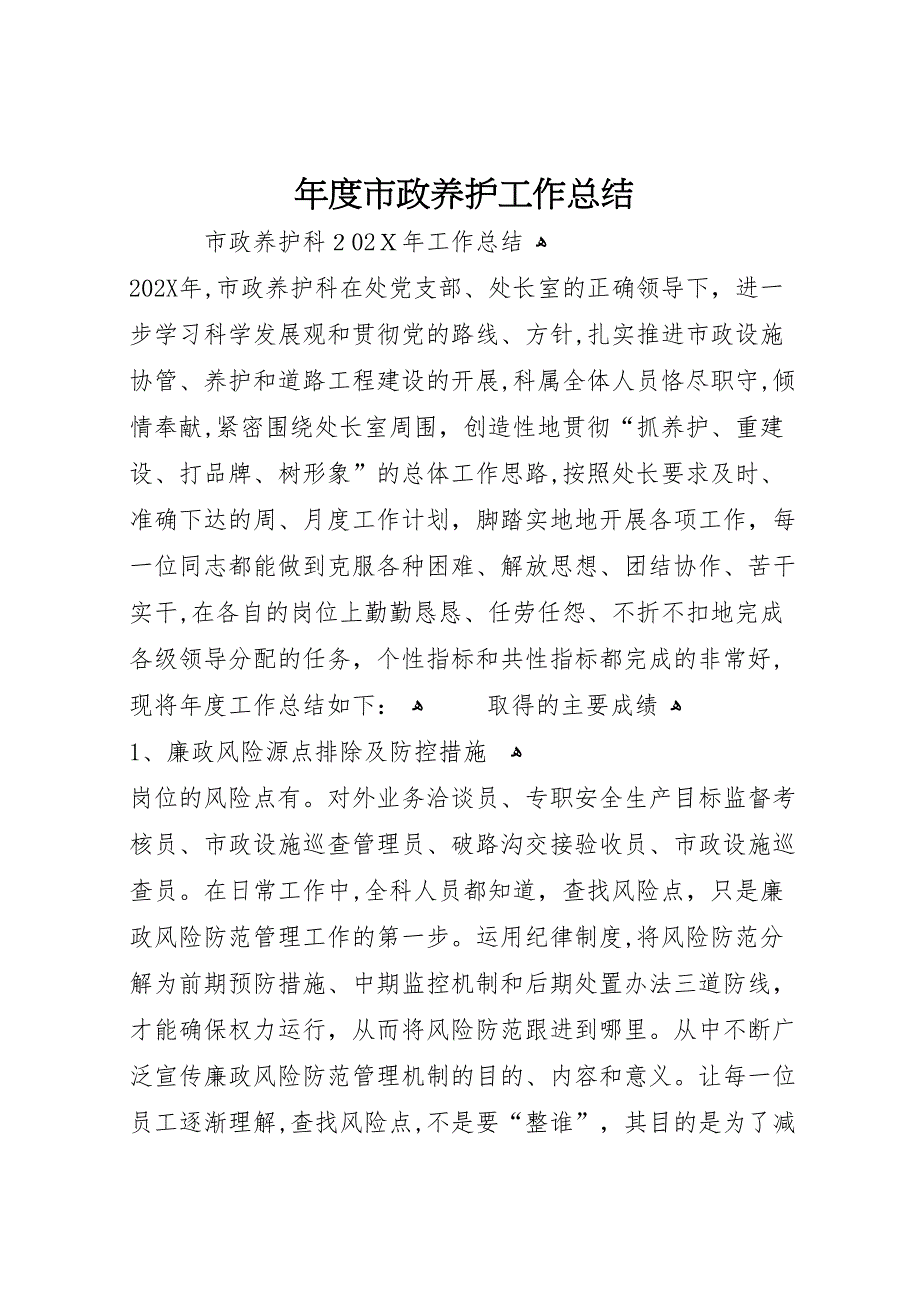 年度市政养护工作总结
市政养护科２02Ｘ年工作总结 ﻫ
202X年,市政养护科在处党支部、处长室的正确领导下，进一
步学习科学发展观和贯彻党的路线、方针,扎实推进市政设施
协管、养护和道路工程建设的开展,科属全体人员恪尽职守,倾
情奉献,紧密围绕处长室周围，创造性地贯彻“抓养护、重建
设、打品牌、树形象”的总体工作思路,按照处长要求及时、
准确下达的周、月度工作计划，脚踏实地地开展各项工作，每
一位同志都能做到克服各种困难、解放思想、团结协作、苦干
实干,在各自的岗位上勤勤恳恳、任劳任怨、不折不扣地完成
各级领导分配的任务，个性指标和共性指标都完成的非常好,
现将年度工作总结如下： ﻫ 取得的主要成绩 ﻫ
1、廉政风险源点排除及防控措施 ﻫ
岗位的风险点有。对外业务洽谈员、专职安全生产目标监督考
核员、市政设施巡查管理员、破路沟交接验收员、市政设施巡
查员。在日常工作中,全科人员都知道，查找风险点，只是廉
政风险防范管理工作的第一步。运用纪律制度,将风险防范分
解为前期预防措施、中期监控机制和后期处置办法三道防线，
才能确保权力运行，从而将风险防范跟进到哪里。从中不断广
泛宣传廉政风险防范管理机制的目的、内容和意义。让每一位
员工逐渐理解,查找风险点,不是要“整谁”，其目的是为了减